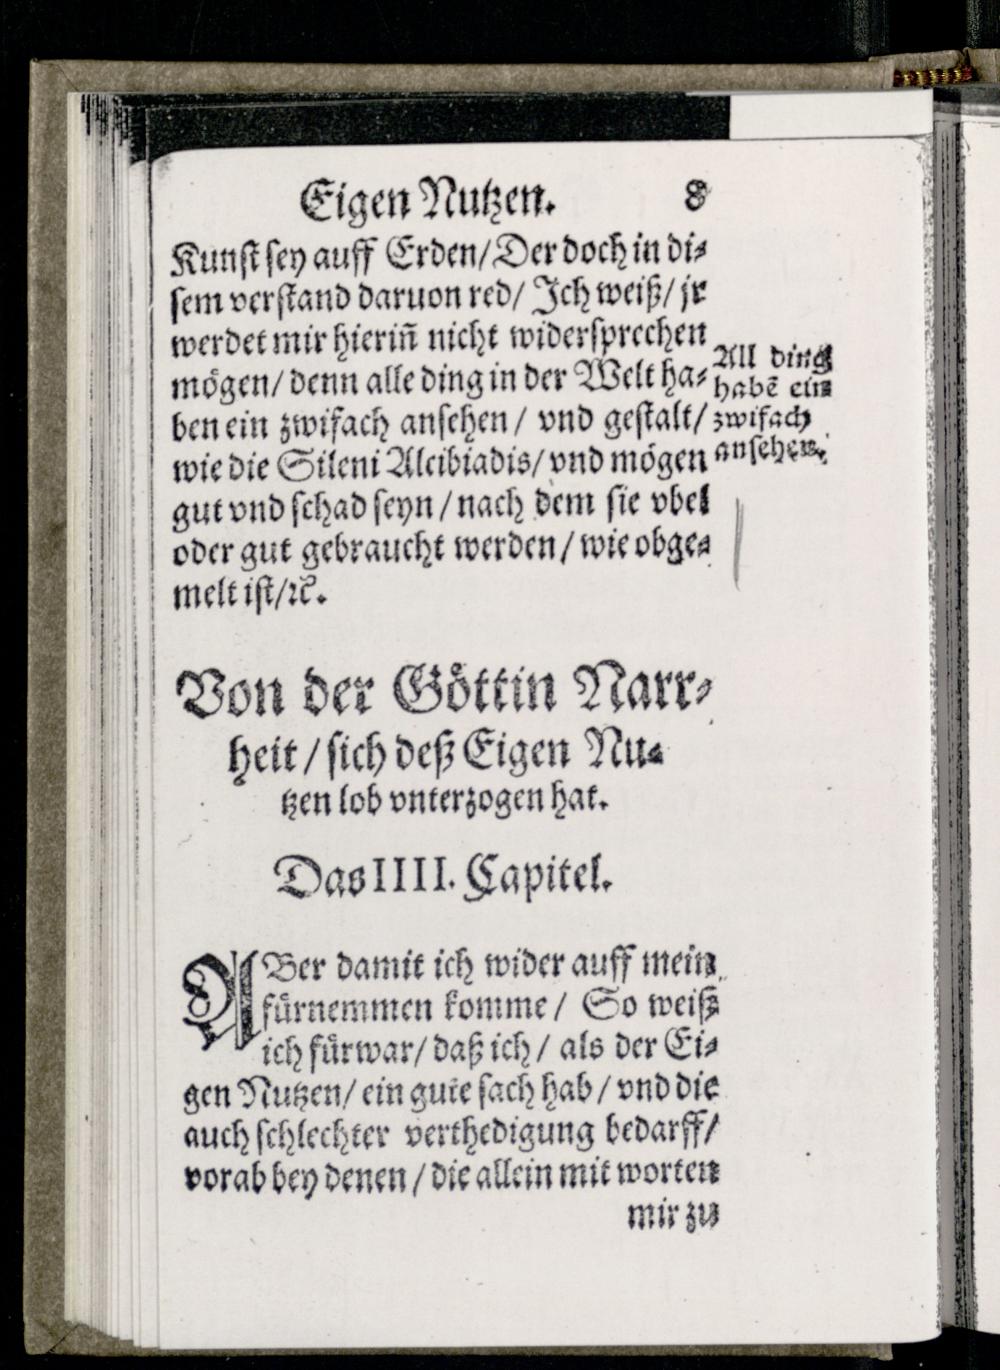 Eigen Nutzen. 8
Kunst sey auff Erden/ Der doch in di⸗
sem verstand daruon red/ Ich weiß/ jr
werdet mir hieriñ nicht widersprechen
mögen/ denn alle ding in der Welt ha⸗
ben ein zwifach ansehen/ vnd gestalt/
wie die Sileni Alcibiadis/ vnd mögen
gut vnd schad seyn/ nach dem sie vbel
oder gut gebraucht werden/ wie obge⸗
melt ist/ ꝛc.
All ding
habẽ ein
zwifach
ansehen.
Von der Göttin Narr⸗
heit/ sich deß Eigen Nu⸗
tzen lob vnterzogen hat.
Das IIII. Capitel.
ABer damit ich wider auff mein
fürnemmen komme/ So weiß
ich fürwar/ daß ich/ als der Ei⸗
gen Nutzen/ ein gute sach hab/ vnd die
auch schlechter verthedigung bedarff/
vorab bey denen/ die allein mit worten
mir zu